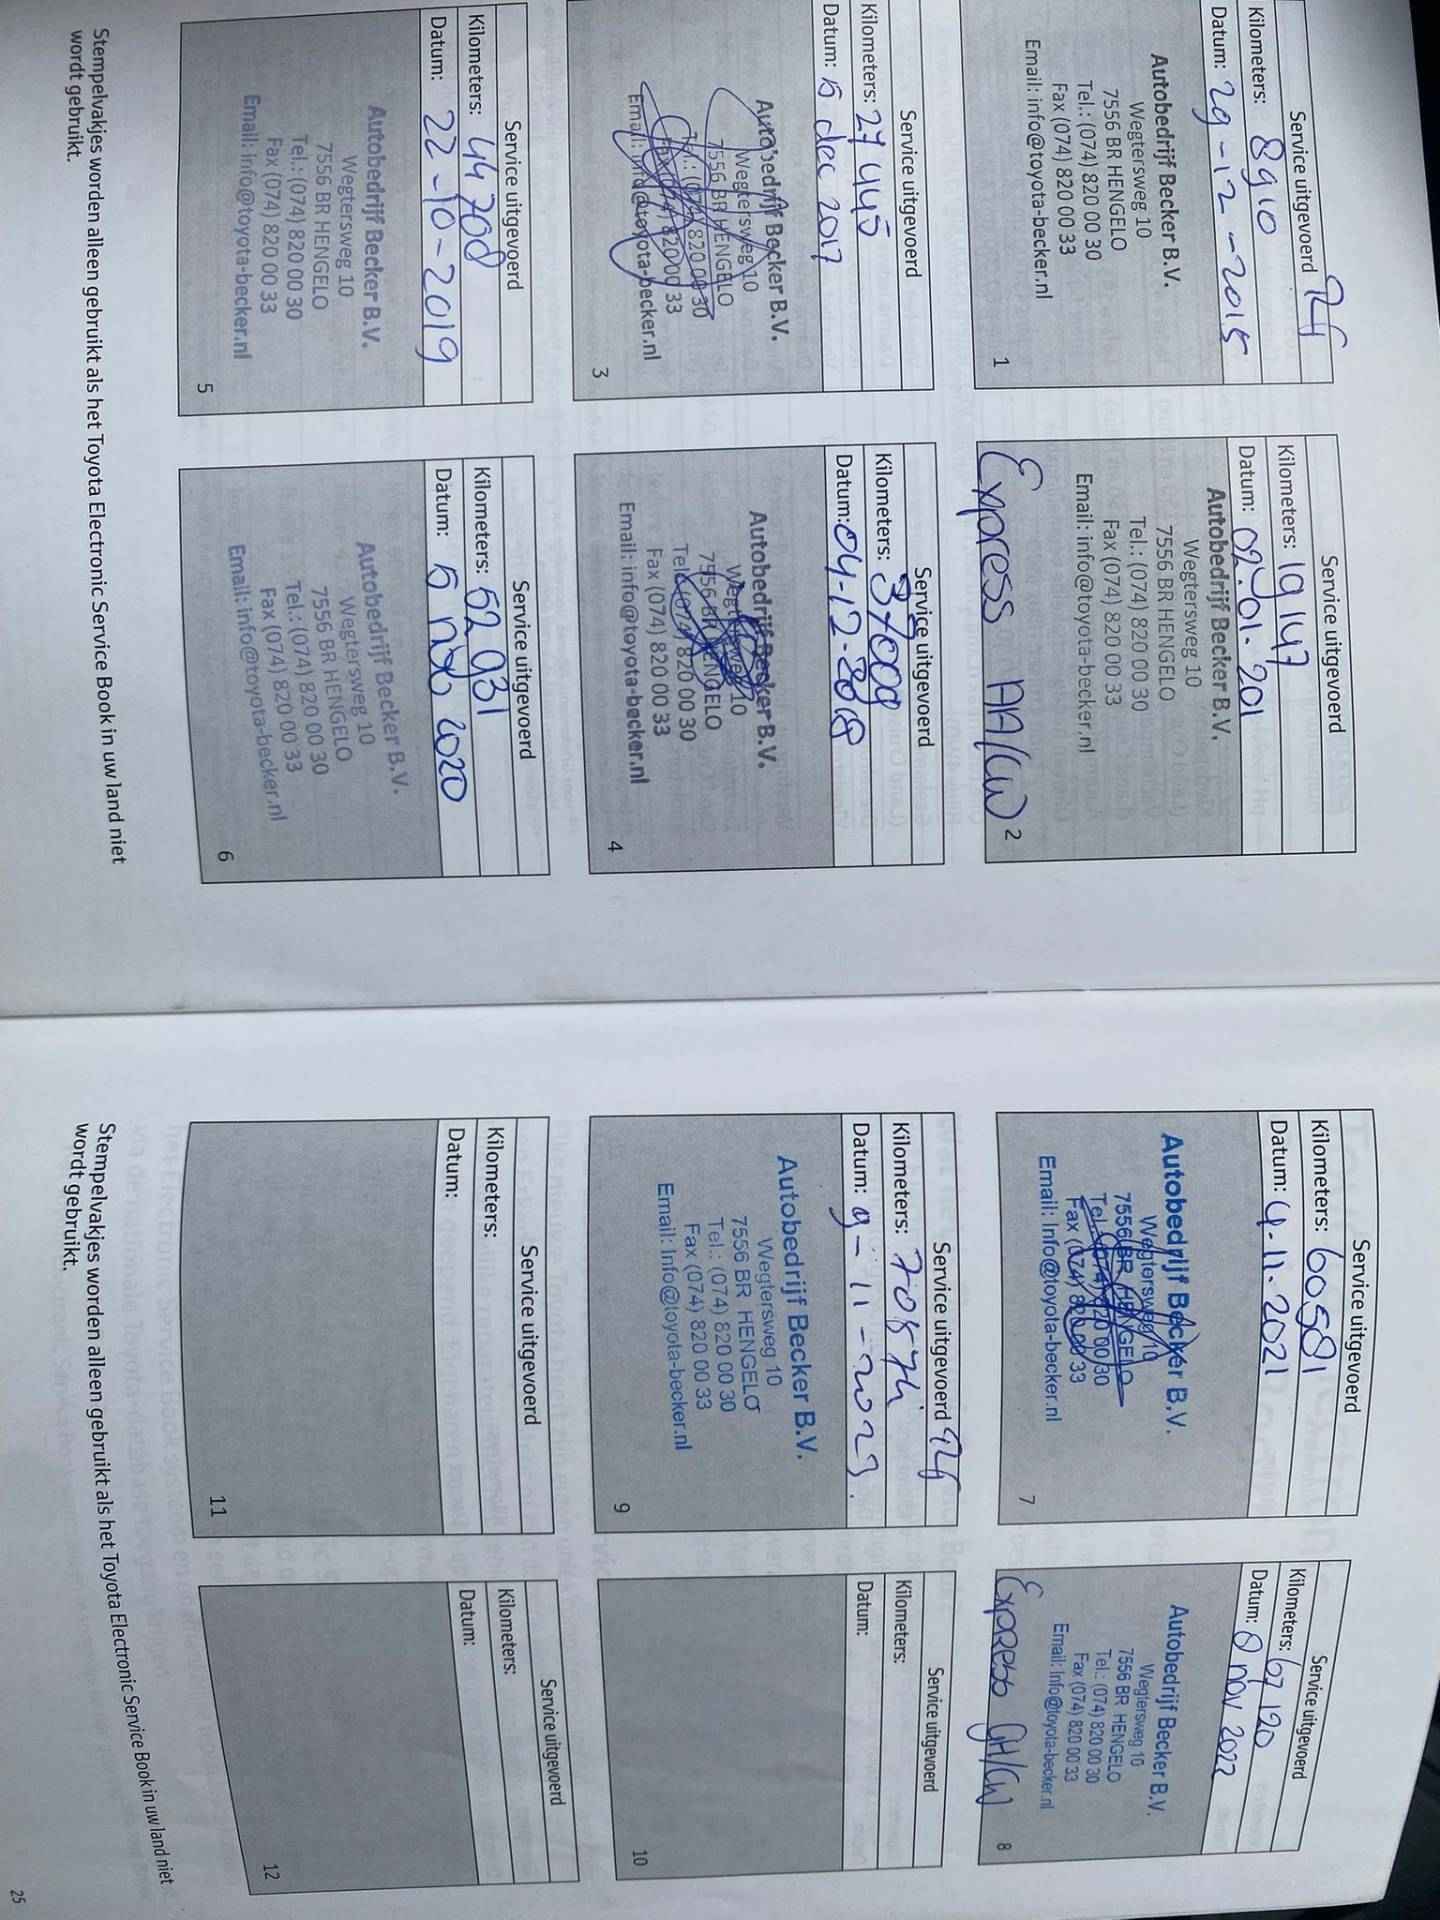 Service uitgevoerd
Kilometers: 8910
Datum: 29-12-2015
Autobedrijf Becker B.V.
Wegtersweg 10
7556 BR HENGELO
Tel.: (074) 820 00 30
Fax (074) 820 00 33
Email: info@toyota-becker.nl
1
Service uitgevoerd
Kilometers: 19147
Datum: 02-01-201
Autobedrijf Becker B.V.
Wegtersweg 10
7556 BR HENGELO
Tel.: (074) 820 00 30
Fax (074) 820 00 33
Email: info@toyota-becker.nl
Express AA/CW
2
Service uitgevoerd
Kilometers: 27445
Datum: 15 dec 2017
Autobedrijf Becker B.V.
Wegtersweg 10
7556 BR HENGELO
Tel.: (074) 820 00 30
Fax (074) 820 00 33
Email: info@toyota-becker.nl
3
Service uitgevoerd
Kilometers: 37009
Datum: 04-12-2018
Autobedrijf Becker B.V.
Wegtersweg 10
7556 BR HENGELO
Tel.: (074) 820 00 30
Fax (074) 820 00 33
Email: info@toyota-becker.nl
4
Service uitgevoerd
Kilometers: 44708
Datum: 22-10-2019
Autobedrijf Becker B.V.
Wegtersweg 10
7556 BR HENGELO
Tel.: (074) 820 00 30
Fax (074) 820 00 33
Email: info@toyota-becker.nl
5
Service uitgevoerd
Kilometers: 52931
Datum: 15 nov 2020
Autobedrijf Becker B.V.
Wegtersweg 10
7556 BR HENGELO
Tel.: (074) 820 00 30
Fax (074) 820 00 33
Email: info@toyota-becker.nl
6
Stempelvakjes worden alleen gebruikt als het Toyota Electronic Service Book in uw land niet
wordt gebruikt.
Service uitgevoerd
Kilometers: 60581
Datum: 4-11-2021
Autobedrijf Becker B.V.
Wegtersweg 10
7556 BR HENGELO
Tel.: (074) 820 00 30
Fax (074) 820 00 33
Email: Info@toyota-becker.nl
7
Service uitgevoerd
Kilometers: 67190
Datum: 8 nov 2022
Autobedrijf Becker B.V.
Wegtersweg 10
7556 BR HENGELO
Tel.: (074) 820 00 30
Fax (074) 820 00 33
Email: Info@toyota-becker.nl
Express GH/CW
8
Service uitgevoerd
Kilometers: 70874
Datum: 9-11-2023.
Autobedrijf Becker B.V.
Wegtersweg 10
7556 BR HENGELO
Tel.: (074) 820 00 30
Fax (074) 820 00 33
Email: Info@toyota-becker.nl
9
Service uitgevoerd
Kilometers:
Datum:
10
Service uitgevoerd
Kilometers:
Datum:
11
Service uitgevoerd
Kilometers:
Datum:
12
Stempelvakjes worden alleen gebruikt als het Toyota Electronic Service Book in uw land niet
wordt gebruikt.
25